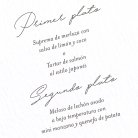 Primer plato
Suprema de merluza con
salsa de limón y coco
o
Tartar de salmón
al estilo japonés
Segundo plato
Meloso de lechón asado
a baja temperatura con
mini manzana y quenefa de patata